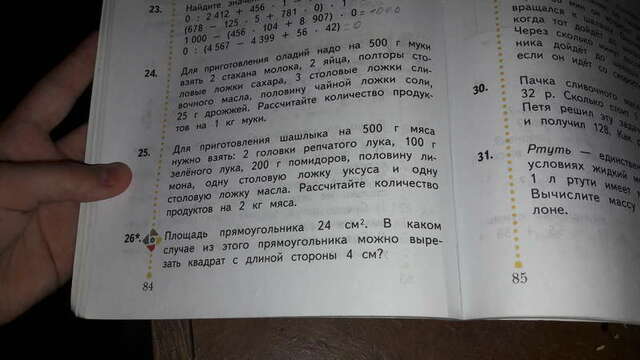 23.
Найдите значен
0 : 2 412 + 456 · 1
(678 − 125 · 5 + 781 · 0) · 1
1 000 − (456 · 104 + 8 907) · 0
0 : (4 567 − 4 399 + 56 · 42)
24.
Для приготовления оладий надо на 500 г муки
взять 2 стакана молока, 2 яйца, полторы сто-
ловые ложки сахара, 3 столовые ложки сли-
вочного масла, половину чайной ложки соли,
25 г дрожжей. Рассчитайте количество продук-
тов на 1 кг муки.
25.
Для приготовления шашлыка на 500 г мяса
нужно взять: 2 головки репчатого лука, 100 г
зелёного лука, 200 г помидоров, половину ли-
мона, одну столовую ложку уксуса и одну
столовую ложку масла. Рассчитайте количество
продуктов на 2 кг мяса.
26*.
Площадь прямоугольника 24 см². В каком
случае из этого прямоугольника можно выре-
зать квадрат с длиной стороны 4 см?
84
вращался с
когда тот дойдёт
Через сколько мину
ника дойдёт до
если он идёт со
30.
Пачка сливочного
32 р. Сколько стоят
Петя решил эту за
и получил 128. Как
31.
Ртуть — единств
условиях жидкий м
1 л ртути имеет
Вычислите массу
лоне.
85